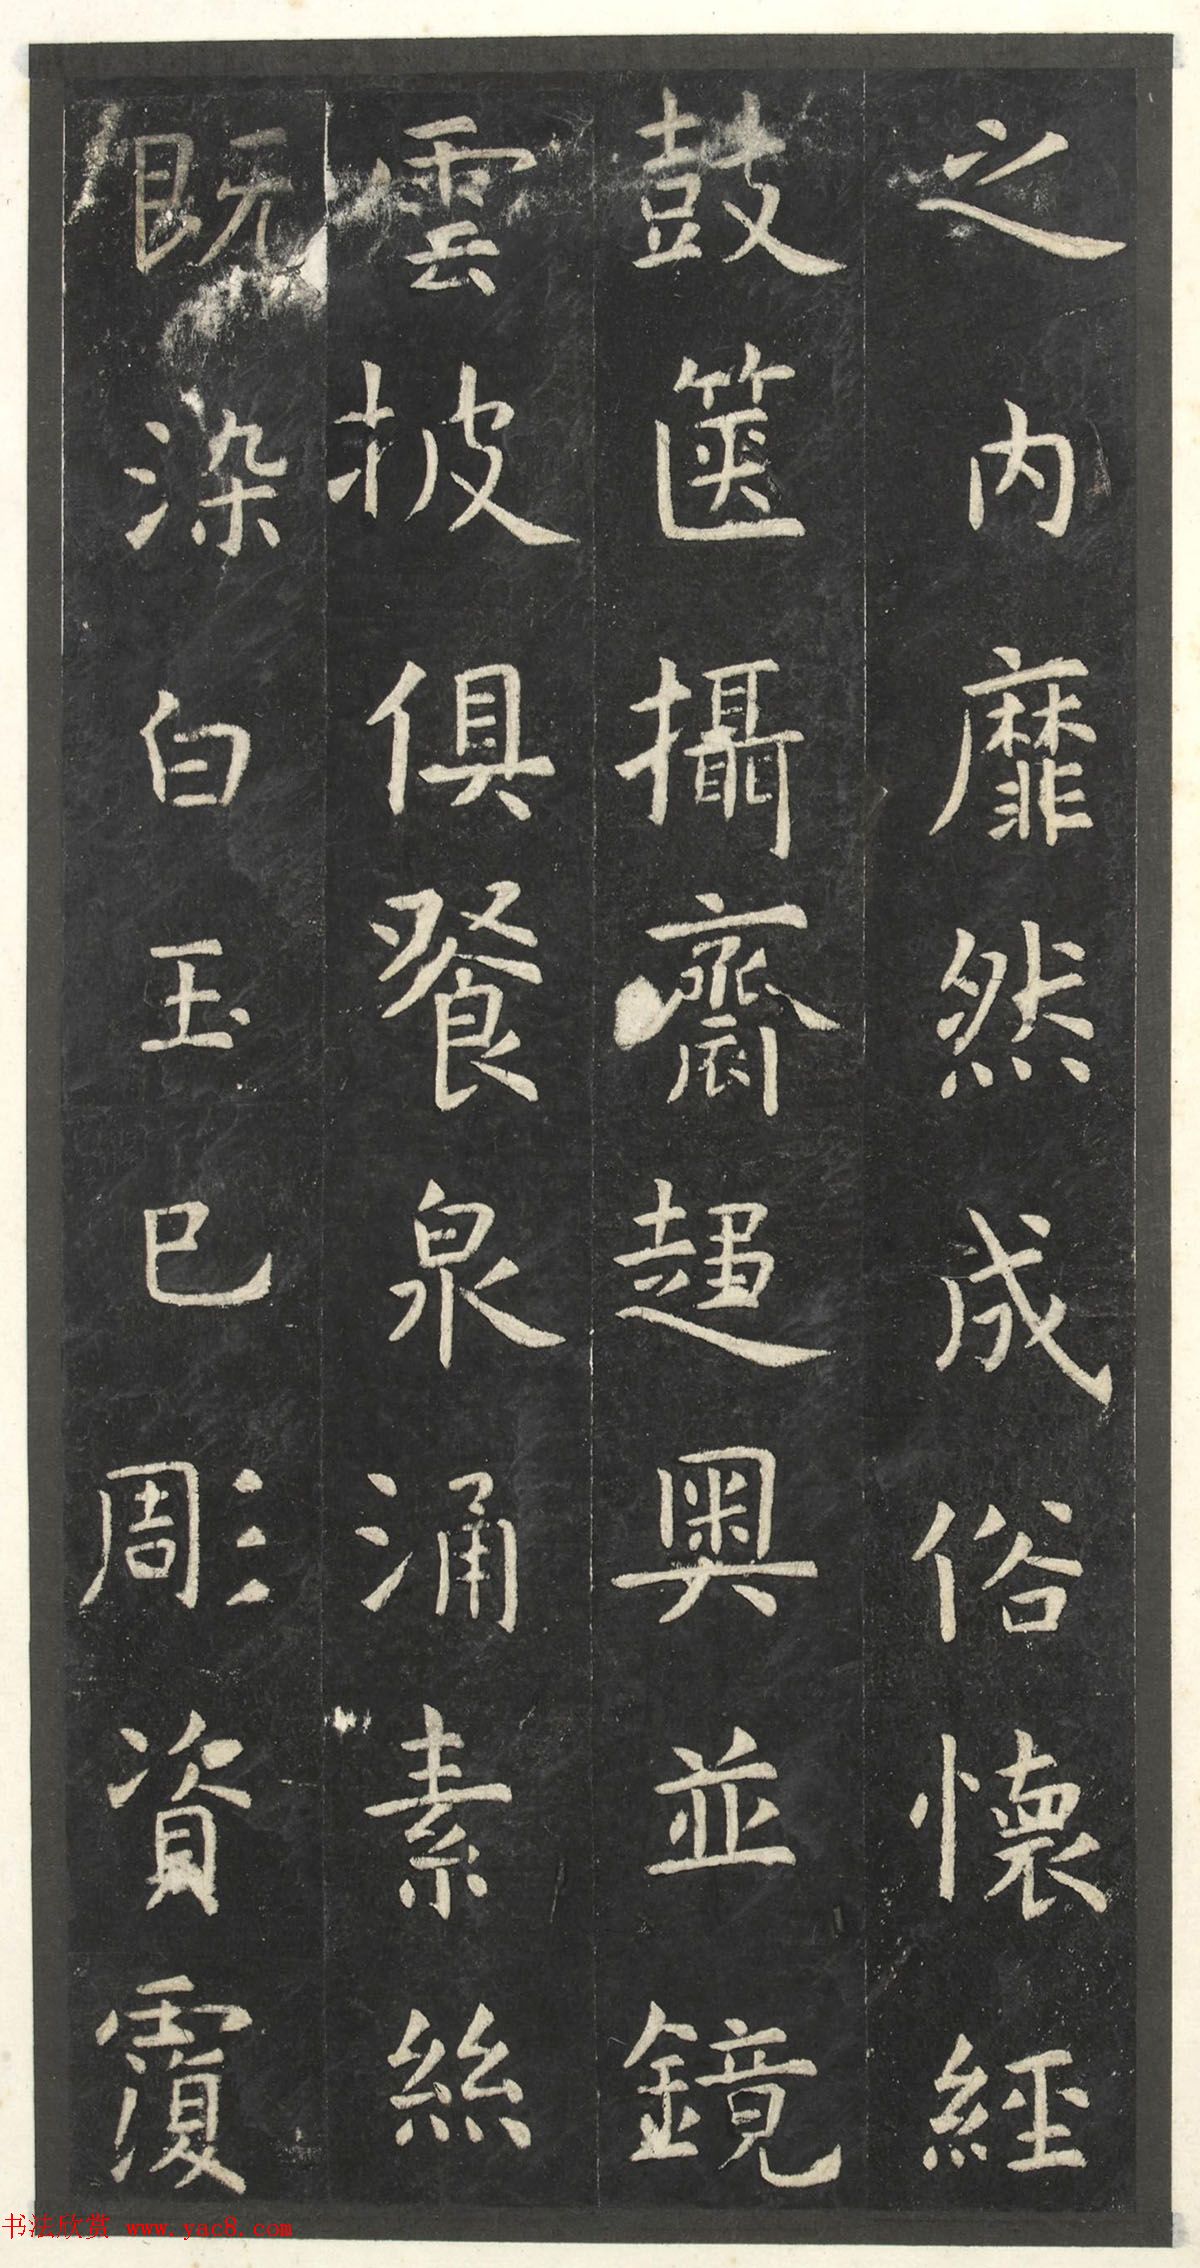 之內靡然成俗懷經
鼓篋攝齋趨奧並鏡
雲披俱餐泉涌素絲
既染白玉已彫資覆
书法欣赏 www.yac8.com